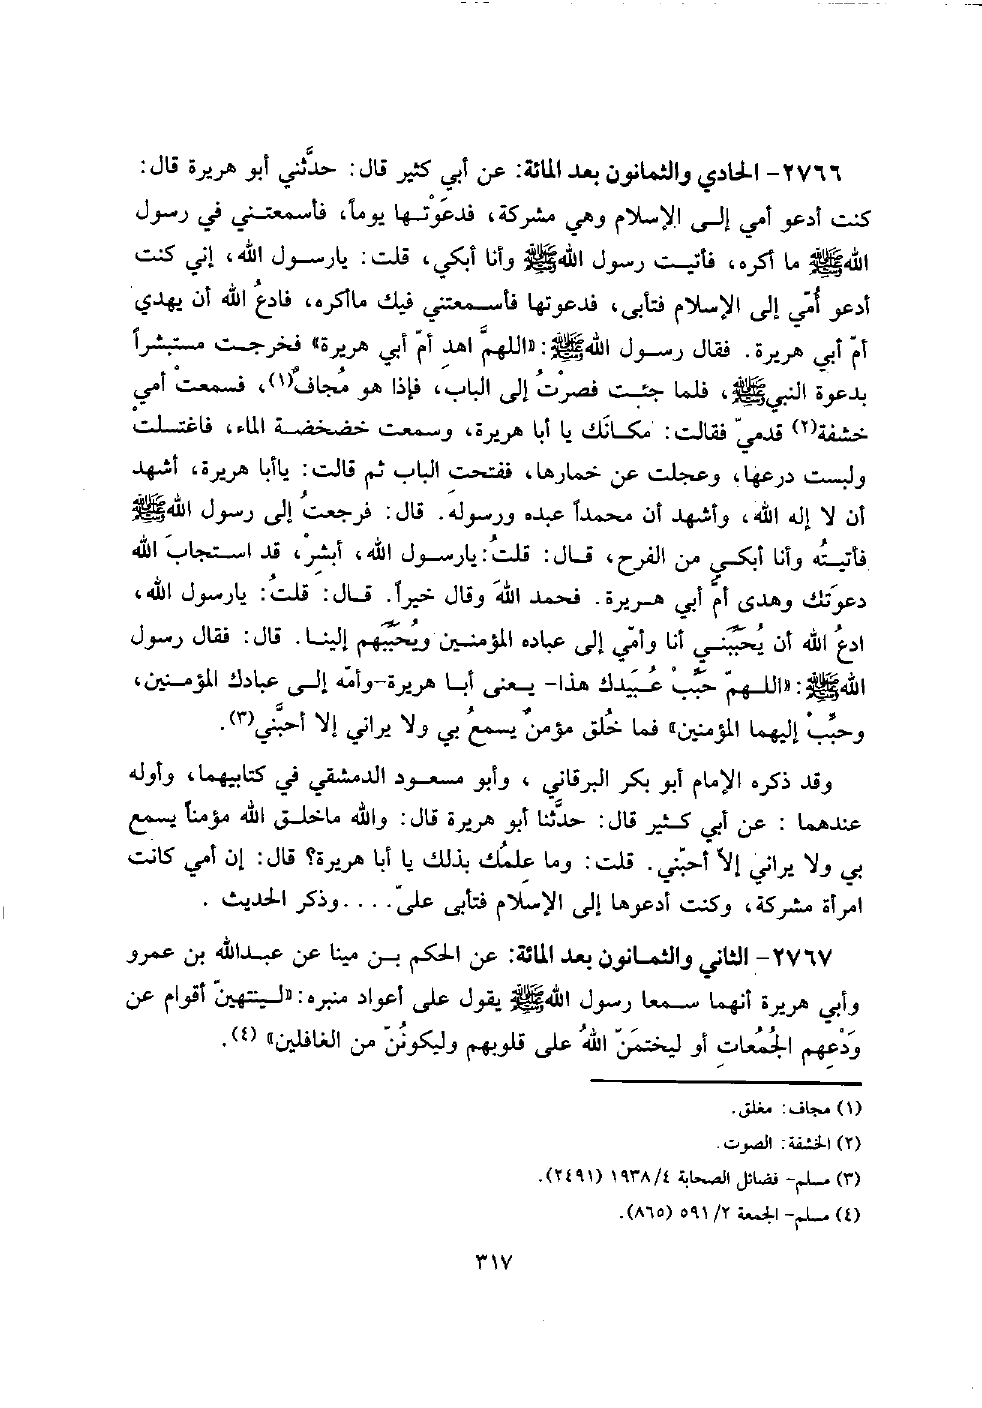 ٢٧٦٦- الحادي والثمانون بعد المائة: عن أبي كثير قال: حدَّثني أبو هريرة قال:
كنت أدعو أمي إلى الإسلام وهي مشركة، فدعَوْتها يوماً، فأسمعتني في رسول
الله ﷺ ما أكره، فأتيت رسول الله ﷺ وأنا أبكي، قلت: يارسول الله، إني كنت
أدعو أُمّي إلى الإسلام فتأبى، فدعوتها فأسمعتني فيك ماأكره، فادعُ الله أن يهدي
أمّ أبي هريرة. فقال رسول الله ﷺ: «اللهمَّ اهدِ أمّ أبي هريرة» فخرجت مستبشراً
بدعوة النبي ﷺ، فلما جئت فصرْتُ إلى الباب، فإذا هو مُجافٌ(١)، فسمعتْ أمي
خشفة(٢) قدميّ فقالت: مكانَك يا أبا هريرة، وسمعت خضخضة الماء، فاغتسلتْ
ولبست درعها، وعجلت عن خمارها، ففتحت الباب ثم قالت: ياأبا هريرة، أشهد
أن لا إله الله، وأشهد أن محمداً عبده ورسوله. قال: فرجعتُ إلى رسول الله ﷺ
فأتيتُه وأنا أبكي من الفرح، قال: قلتُ: يارسول الله، أبشرْ، قد استجابَ الله
دعوتَك وهدى أمَّ أبي هريرة. فحمد اللهَ وقال خيراً. قال: قلتُ: يارسول الله،
ادعُ الله أن يُحَبِّبَني أنا وأمّي إلى عباده المؤمنين ويُحَبِّبَهم إلينا. قال: فقال رسول
الله ﷺ: «اللهمّ حَبِّبْ عُبَيدك هذا- يعنى أبا هريرة-وأمّه إلى عبادك المؤمنين،
وحبِّبْ إليهما المؤمنين» فما خُلق مؤمنٌ يسمعُ بي ولا يراني إلا أحبَّني(٣).
وقد ذكره الإمام أبو بكر البرقاني ، وأبو مسعود الدمشقي في كتابيهما، وأوله
عندهما : عن أبي كثير قال: حدَّثنا أبو هريرة قال: والله ماخلق الله مؤمناً يسمع
بي ولا يراني إلاّ أحبّني. قلت: وما عِلمُك بذلك يا أبا هريرة؟ قال: إن أمي كانت
امرأة مشركة، وكنت أدعوها إلى الإسلام فتأبى عليّ. . . .وذكر الحديث .
٢٧٦٧- الثاني والثمانون بعد المائة: عن الحكم بن مينا عن عبدالله بن عمرو
وأبي هريرة أنهما سمعا رسول الله ﷺ يقول على أعواد منبره: «لينتهينّ أقوام عن
وَدْعِهم الجُمُعاتِ أو ليختمَنّ اللهُ على قلوبهم وليكونُنّ من الغافلين» (٤).
(١) مجاف: مغلق.
(٢) الخشفة: الصوت.
(٣) مسلم- فضائل الصحابة ٤/ ١٩٣٨ (٢٤٩١).
(٤) مسلم- الجمعة ٢/ ٥٩١ (٨٦٥).
٣١٧